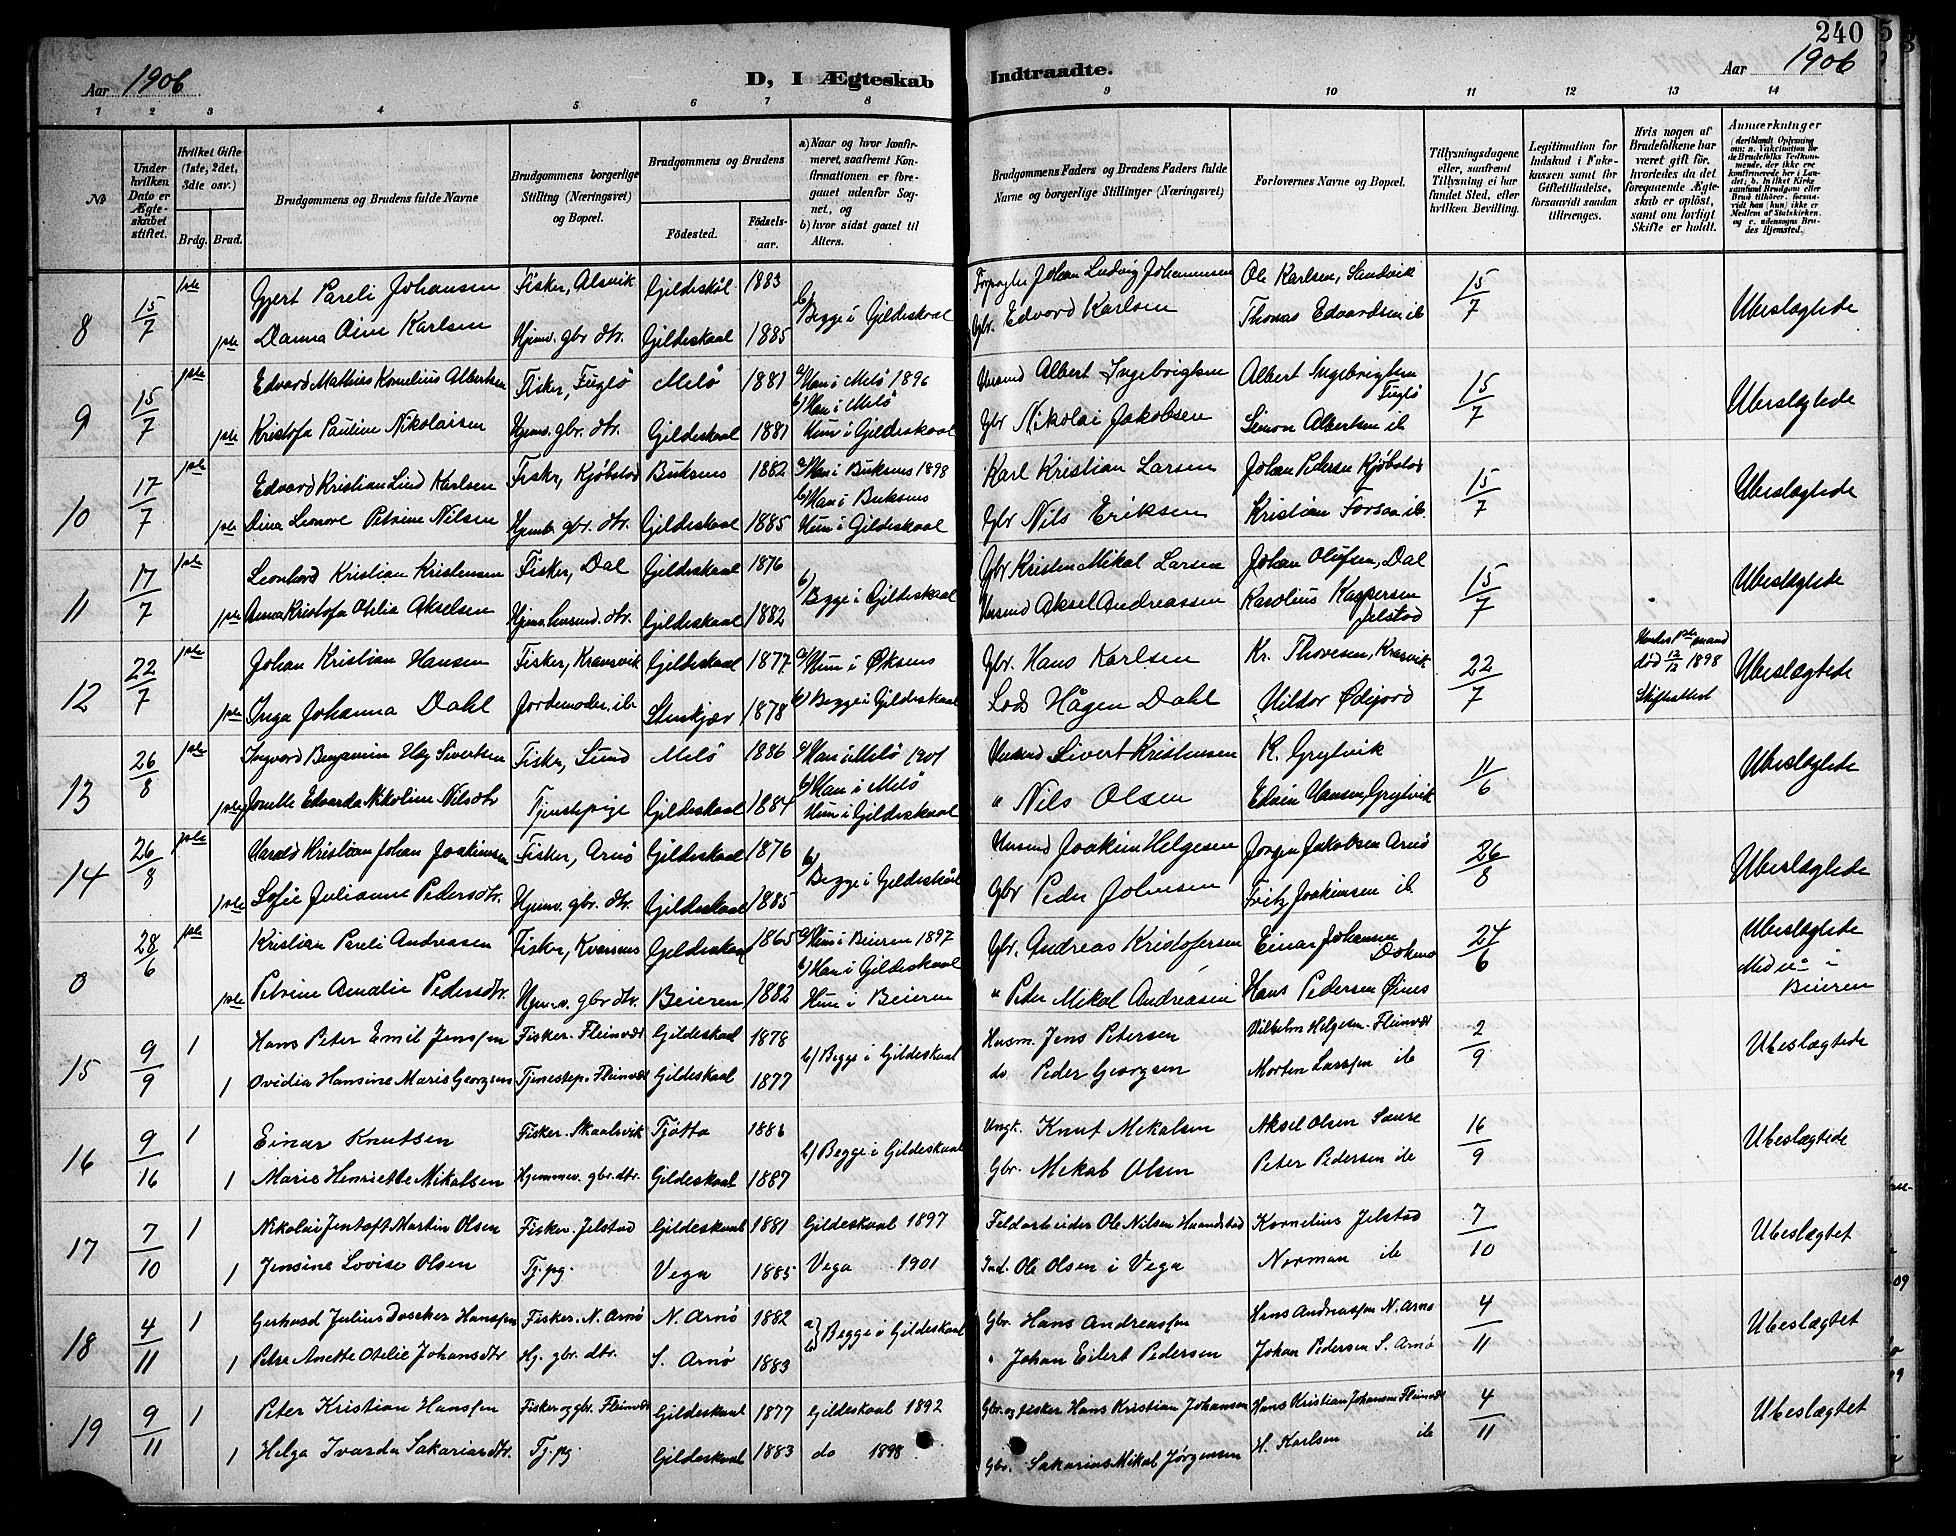 240
Aar 1906
D, I Ægteskab Indtraadte.
Aar 1906
1 2 3 4 5 6 7 8 9 10 11 12 13 14
No
Under hvilken Dato er Ægteskabet stiftet.
Hvilket Gifte (1ste, 2det, 3dte osv.)
Brdg. Brud.
Brudgommens og Brudens fulde Navne
Brudgommens borgerlige Stilling (Næringsvei) og Bopæl.
Brudgommens og Brudens
Födested. Födselsaar.
a) Naar og hvor konfirmeret, saafremt Konfirmationen er foregaaet udenfor Sognet, og
b) hvor sidst gaaet til Alters.
Brudgommens Faders og Brudens Faders fulde Navne og borgerlige Stillinger (Næringsvei)
Forlovernes Navne og Bopæl.
Tillysningsdagene eller, saafremt Tillysning ei har fundet Sted, efter hvilken Bevilling.
Legitimation for Indskud i Enkekassen samt for Giftetilladelse, forsaavidt saadan tiltrænges.
Hvis nogen af Brudefolkene har været gift för, hvorledes da det foregaaende Ægteskab er oplöst, samt om lovligt Skifte er holdt.
Anmærkninger
8 15/7 1ste Gjert Pareli Johansen Fisker, Alsvik Gildeskål 1883 b) Begge i Gildeskaal Johan Ludvig Johannesen Ole Karlsen, Sandvik 15/7 Ubeslægtede
1ste Danna Oive Karlsen Hjemv. gbr. dtr. Gildeskaal 1885 Gbr. Edvard Karlsen Thomas Edvardsen ib
9 15/7 1ste Edvard Mathius Kornelius Albertsen Fisker, Fuglö Melö 1881 a) Han i Melö 1896 Husmd Albert Ingebrigtsen Albert Ingebrigtsen Fuglö 15/7 Ubeslægtede
b) Han i Melö
1ste Kristofa Pauline Nikolaisen Hjemv. gbr. dtr. Gildeskaal 1881 Hun i Gildeskaal Gbr Nikolai Jakobsen Simon Albertsen ib
10 17/7 1ste Edvard Kristian Lind Karlsen Fisker, Kjøbstad Buksnes 1882 a) Han i Buksnes 1898 Karl Kristian Larsen Johan Pedersen Kjöbstad 15/7 Ubeslægtede
b) Han i Buksnes
1ste Dina Leonore Petrine Nilsen Hjemv. gbr. dtr. Gildeskaal 1885 Hun i Gildeskaal Gbr Nils Eriksen Kristian Forsaa ib.
11 17/7 1ste Leonhard Kristian Kristensen Fisker, Dal Gildeskaal 1876 b) Begge i Gildeskaal Gbr Kristen Mikal Larsen Johan Olufsen, Dal 15/7 Ubeslægtede
1ste Anna Kristofa Otelia Akselsen Hjemv. husmd. dtr. Gildeskaal 1882 Husmd Aksel Andreassen Karolius Kaspersen Jelstad
12 22/7 1ste Johan Kristian Hansen Fisker, Kransvik Gildeskaal 1877 a) Hun i Øksnes Gbr. Hans Karlsen Kr. Thoresen, Kransvik 22/7 Hendes 1ste mand död 12/12 1898 Ubeslægtede
1ste Inga Johanna Dahl Jordemoder, ib Stenkjær 1878 b) Begge i Gildeskaal Lods Hågen Dahl Hildor Ødejord Skifteattest
13 26/8 1ste Ingvard Benjamin Hag Sivertsen Fisker, Sund Melö 1886 a) Han i Melö 1901 Husmd Sivert Kristensen K. Grytvik 11/6 Ubeslægtede
b) Han i Melö
1ste Edvarda Nikoline Nilsdtr Tjenstepige Gildeskaal 1884 Hun i Gildeskaal " Nils Olsen Edvin Hansen, Grytvik
14 26/8 1ste Harald Kristian Johan Joakimsen Fisker, Arnö Gildeskaal 1876 b) Begge i Gildeskål Husmd Joakim Helgesen Jörgen Jakobsen Arnö 26/8 Ubeslægtede
1ste Sofie Julianne Pedersdtr. Hjemv. gbr. dtr. Gildeskaal 1885 Gbr Peder Johnsen Fritz Joakimsen ib.
0 28/6 1ste Kristian Pareli Andreasen Fisker, Kvarsnes Gildeskaal 1865 a) Hun i Beieren 1897 Gbr. Andreas Kristofersen Einar Johansen Dokmo 24/6 Ubeslægtede
b) Han i Gildeskaal Med i Beieren
1ste Petrine Amalie Pedersdtr. Hjemv. gbr dtr. Beieren 1882 Hun i Beieren " Peter Mikal Andreasen Hans Pedersen Øines
15 9/9 1 Hans Peter Emil Jenssen Fisker. Fleinvær Gildeskaal 1878 b) Begge i Gildeskaal Husm. Jens Petersen Vilhelm Helgesen. Fleinvær 2/9 Ubeslægtede
1 Ovidia Hansine Maris Georgsen Tjenestep. Fleinvær Gildeskaal 1877 do Peder Georgsen Morten Larssen ib
16 9/16 1 Einar Knutsen Fisker. Skaalsvik Tjøtta 1886 b) Begge i Gildeskaal Ungk. Knut Mekalsen Aksel Olsen Saure 16/9 Ubeslægtede
1 Marie Henriette Mikalsen Hjemmev. gbr. dtr. Gildeskaal 1887 Gbr. Mekal Olsen Peter Pedersen ib
17 7/10 1 Nikolai Jentoft Martin Olsen Fisker. Jelstad Gildeskaal 1881 Gildeskaal 1897 Feldarbeider Ole Nilsen Haandstad Kornelius Jelstad 7/10 Ubeslægtet
1 Jensine Lovise Olsen Tj. pg. Vega 1885 Vega 1901 Ind. Ole Olsen i Vega Norman ib
18 4/11 1 Gerhard Julius Hanssen Fisker. N. Arnö N. Arnö 1882 a) b) Begge i Gildeskaal Gbr. Hans Andreassen Hans Andreassen N. Arnö 4/11 Ubeslægtet
1 Petra Anette Otelie Johansdtr Hj. gbr. dtr. S. Arnö 1883 " Johan Eilert Pedersen Johan Pedersen S. Arnö
19 9/11 1 Peter Kristian Hanssen Fisker og gbr. Fleinvær Gildeskaal 1877 Gildeskaal 1892 Gbr. og fisker Hans Kristian Johansen Hans Kristian Johansen Fleinvær 4/11 Ubeslægtet
1 Helga Ivarda Sakariasdtr. Tj. pg. Gildeskaal 1883 do 1898 Gbr. Sakarias Mikal Jørgensen H. Karlsen ib